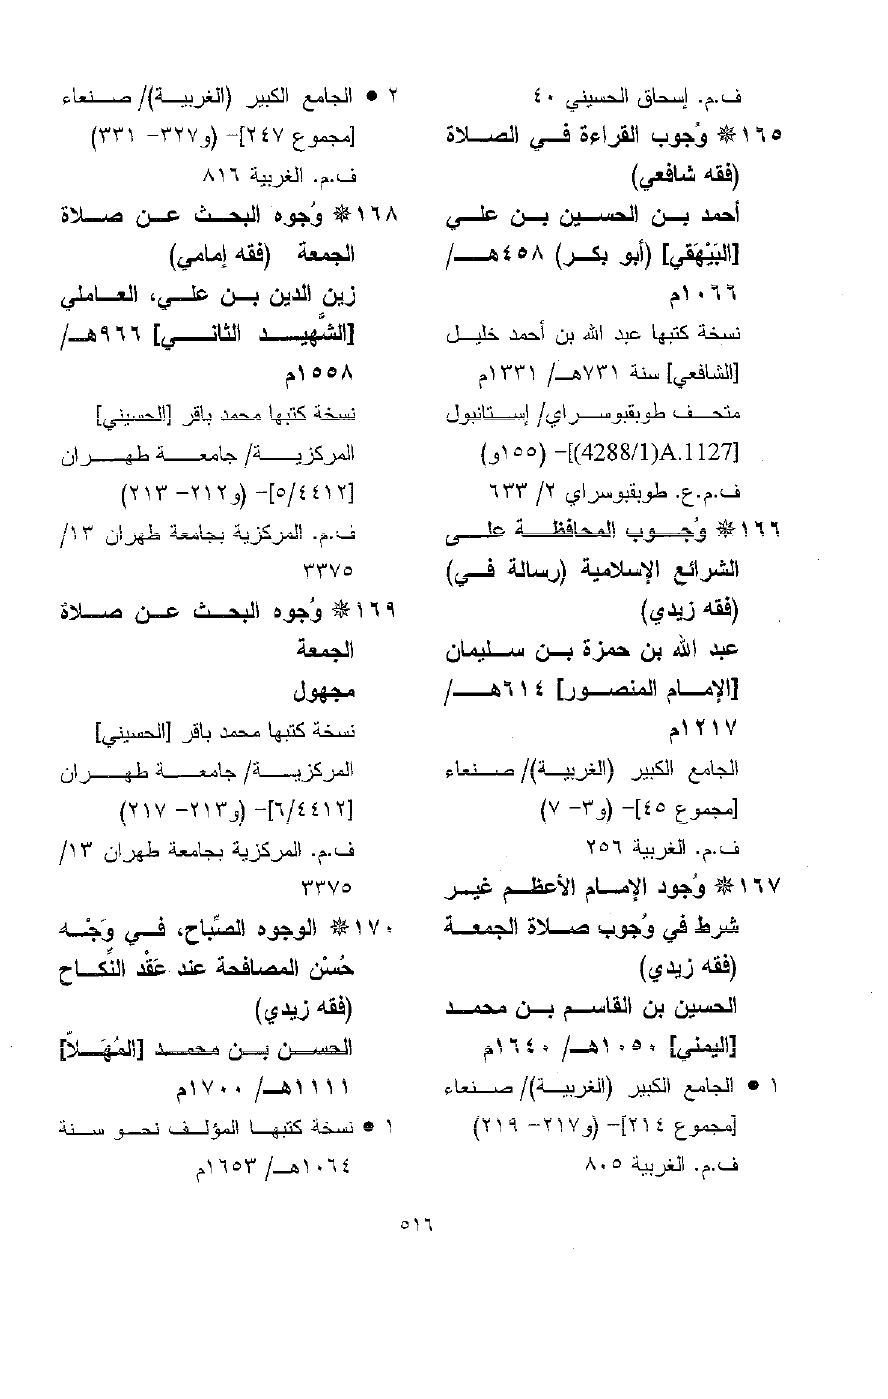 ف.م. إسحاق الحسيني ٤٠
١٦٥ ❊ وُجوب القراءة في الصلاة
(فقه شافعي)
أحمد بن الحسين بن علي
[البَيْهَقي] (أبو بكر) ٤٥٨هـ/
١٠٦٦م
نسخة كتبها عبد الله بن أحمد خليل
[الشافعي] سنة ٧٣١هـ/ ١٣٣١م
متحف طوبقبوسراي/ إستانبول
[A.1127(4288/1)]- (١٥٥و)
ف.م.ع. طوبقبوسراي ٢/ ٦٣٣
١٦٦ ❊ وُجوب المحافظة على
الشرائع الإسلامية (رسالة في)
(فقه زيدي)
عبد الله بن حمزة بن سليمان
[الإمام المنصور] ٦١٤هـ/
١٢١٧م
الجامع الكبير (الغربية)/ صنعاء
[مجموع ٤٥]- (و٣- ٧)
ف.م. الغربية ٢٥٦
١٦٧ ❊ وُجود الإمام الأعظم غير
شرط في وُجوب صلاة الجمعة
(فقه زيدي)
الحسين بن القاسم بن محمد
[اليمني] ١٠٥٠هـ/ ١٦٤٠م
١ ● الجامع الكبير (الغربية)/ صنعاء
[مجموع ٢١٤]- (و٢١٧- ٢١٩)
ف.م. الغربية ٨٠٥
٢ ● الجامع الكبير (الغربية)/ صنعاء
[مجموع ٢٤٧]- (و٣٢٧- ٣٣١)
ف.م. الغربية ٨١٦
١٦٨ ❊ وُجوه البحث عن صلاة
الجمعة (فقه إمامي)
زين الدين بن علي، العاملي
[الشَّهيد الثاني] ٩٦٦هـ/
١٥٥٨م
نسخة كتبها محمد باقر [الحسيني]
المركزية/ جامعة طهران
[٥/٤٤١٢]- (و٢١٢- ٢١٣)
ف.م. المركزية بجامعة طهران ١٣/
٣٣٧٥
١٦٩ ❊ وُجوه البحث عن صلاة
الجمعة
مجهول
نسخة كتبها محمد باقر [الحسيني]
المركزية/ جامعة طهران
[٦/٤٤١٢]- (و٢١٣- ٢١٧)
ف.م. المركزية بجامعة طهران ١٣/
٣٣٧٥
١٧٠ ❊ الوجوه الصِّباح، في وَجْه
حُسْن المصافحة عند عَقْد النِّكاح
(فقه زيدي)
الحسن بن محمد [المُهَلاّ]
١١١١هـ/ ١٧٠٠م
١ ● نسخة كتبها المؤلف نحو سنة
١٠٦٤هـ/ ١٦٥٣م
٥١٦